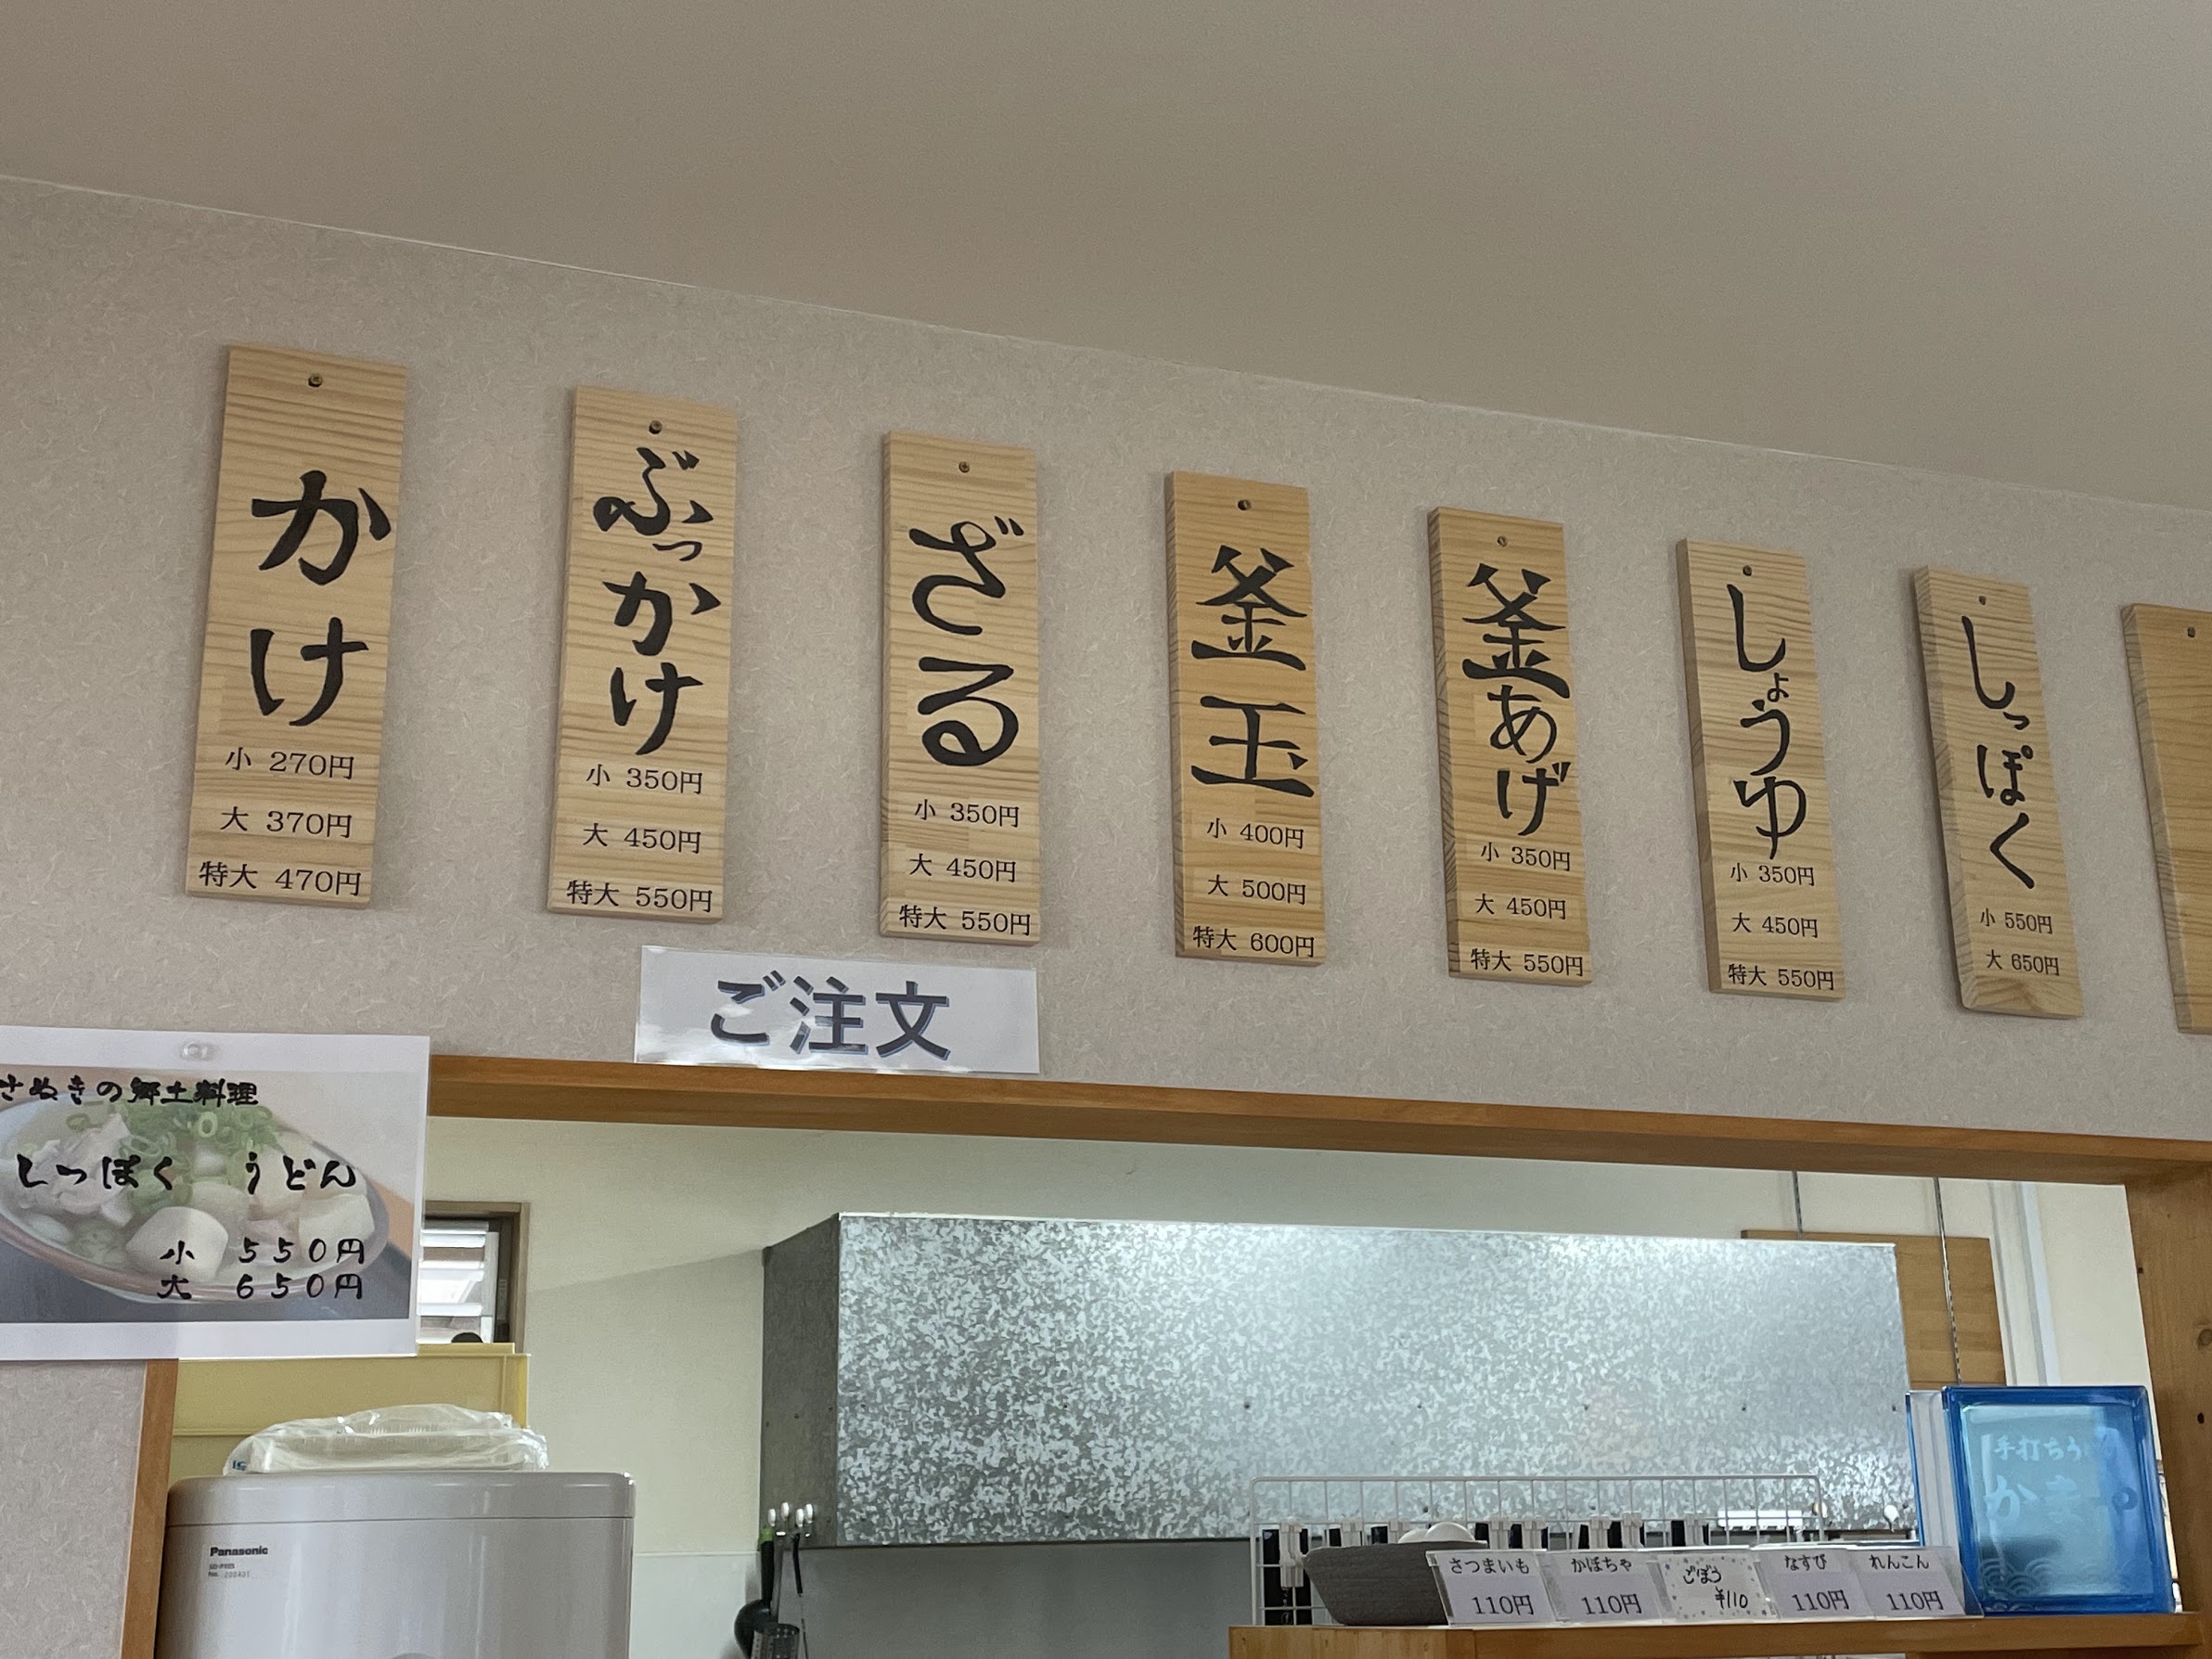 かけ
小 270円
大 370円
特大 470円
ぶっかけ
小 350円
大 450円
特大 550円
ざる
小 350円
大 450円
特大 550円
釜玉
小 400円
大 500円
特大 600円
釜あげ
小 350円
大 450円
特大 550円
しょうゆ
小 350円
大 450円
特大 550円
しっぽく
小 550円
大 650円
ご注文
さぬきの郷土料理
しっぽく うどん
小 550円
大 650円
Panasonic
さつまいも
110円
かぼちゃ
110円
ごぼう
¥110
なすび
110円
れんこん
110円
手打ちう
かま